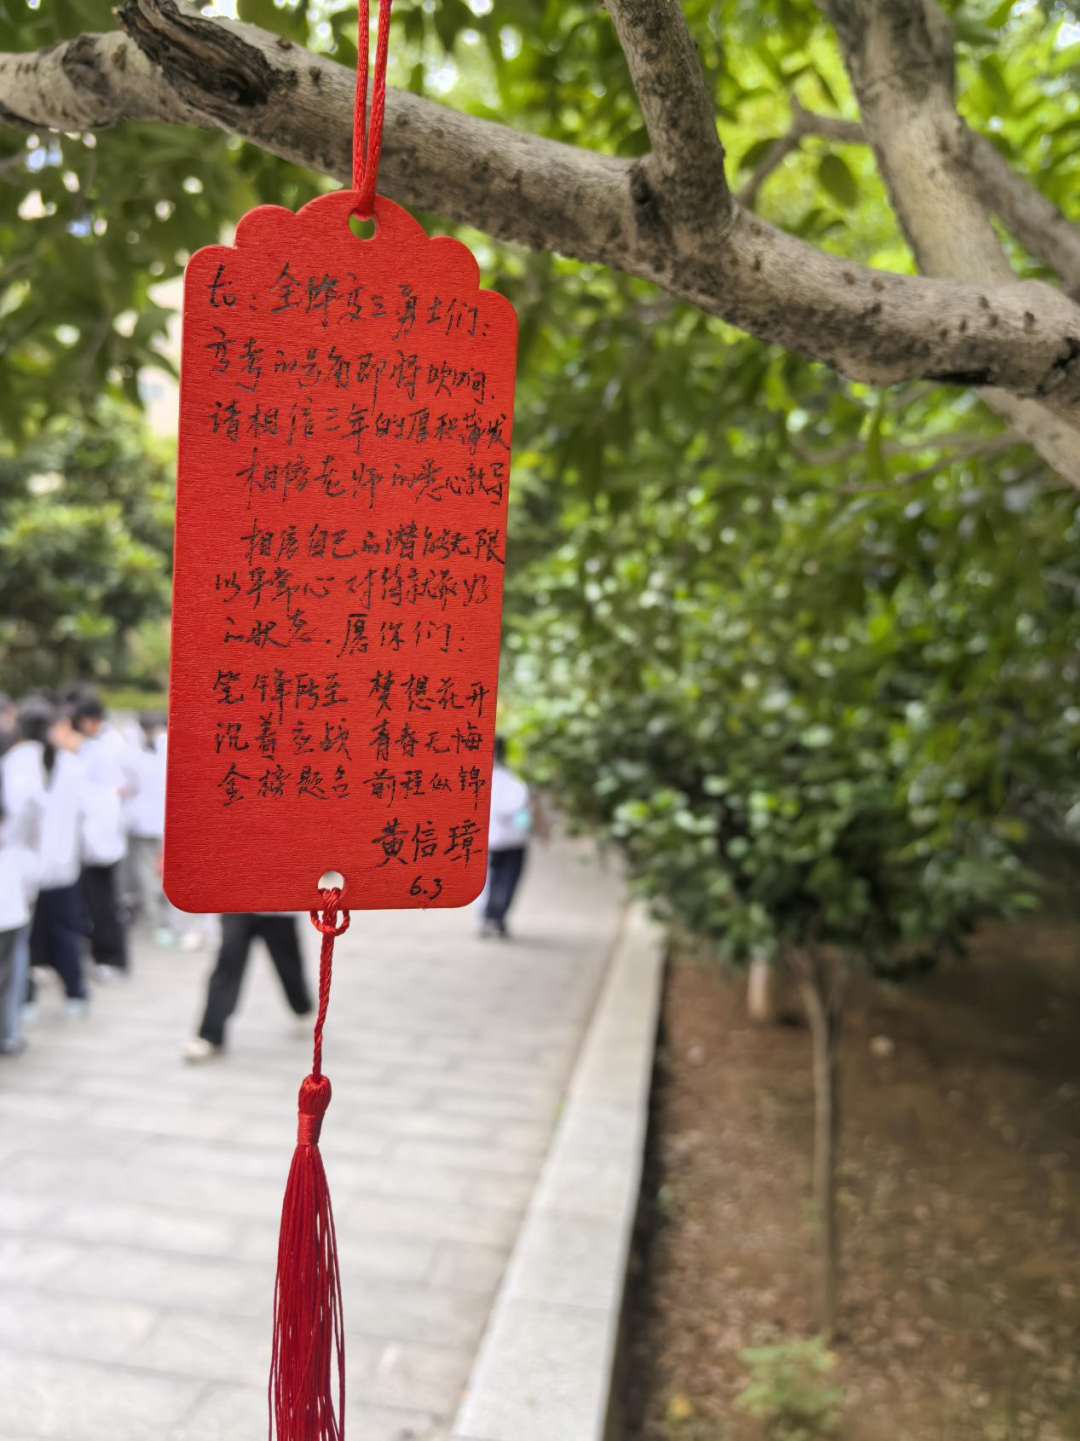 to：全体高三勇士们：
高考的号角即将吹响，
请相信三年的厚积薄发
相信老师的悉心教导
相信自己的潜能无限
以平常心对待就最好
的状态．愿你们：
笔锋所至 梦想花开
沉着应战 青春无悔
金榜题名 前程似锦
黄信璋
6.3